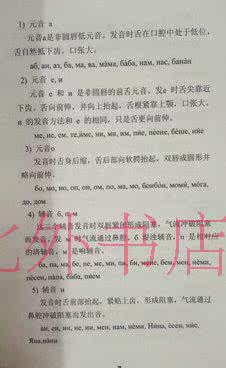 1) 元音 а
元音а是非圆唇低元音。发音时舌在口腔中处于低位，
舌自然抵下齿，口张大。
аб, ан, аз, ба, ма, ва, ма́ма, ба́ба, нам, нас, бана́н
2) 元音 е, и
元音 е 和 и 是非圆唇的前舌元音。发е 时舌尖靠近
下齿，舌向前伸，并向上抬起，舌根紧靠上颚，口张大。
и 的发音方法和 е 相同，只是舌更向前伸。
ме, не, ем, те, име, ни, ми, им, пи́е, пе́ене, бе́ше, ни́е
3) 元音о
发音时舌身后缩，舌后部向软腭抬起，双唇成圆形并
略向前伸。
бо, мо, но, оп, он, ом, по, ма, мо, бонбо́н, моми́, мо́га,
до, дом
4) 辅音 б, п, м
这三个辅音发音时双唇紧闭形成阻塞，气流冲破阻塞
而发音。发 м 时气流通过鼻腔。б 是浊辅音，п 是相应
的清辅音，м 是响辅音。
ба, па, ма, бе, пе, ме, ми, пи, би, мо, бем, мен,
песен, па́па, ба́ба, пи́ем
5) 辅音 н
发音时舌前部抬起，紧贴上齿，形成阻塞，气流通过
鼻腔冲破阻塞而发出音。
ан, ен, ни, не, ни, мен, нам, не́ми, Ни́на, пе́сен, ни́е,
Я́на, на́ни
北外书店